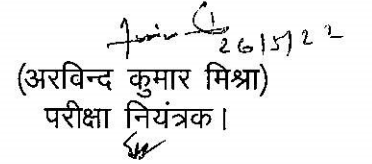 26/5/22
(अरविन्द कुमार मिश्रा)
परीक्षा नियंत्रक।